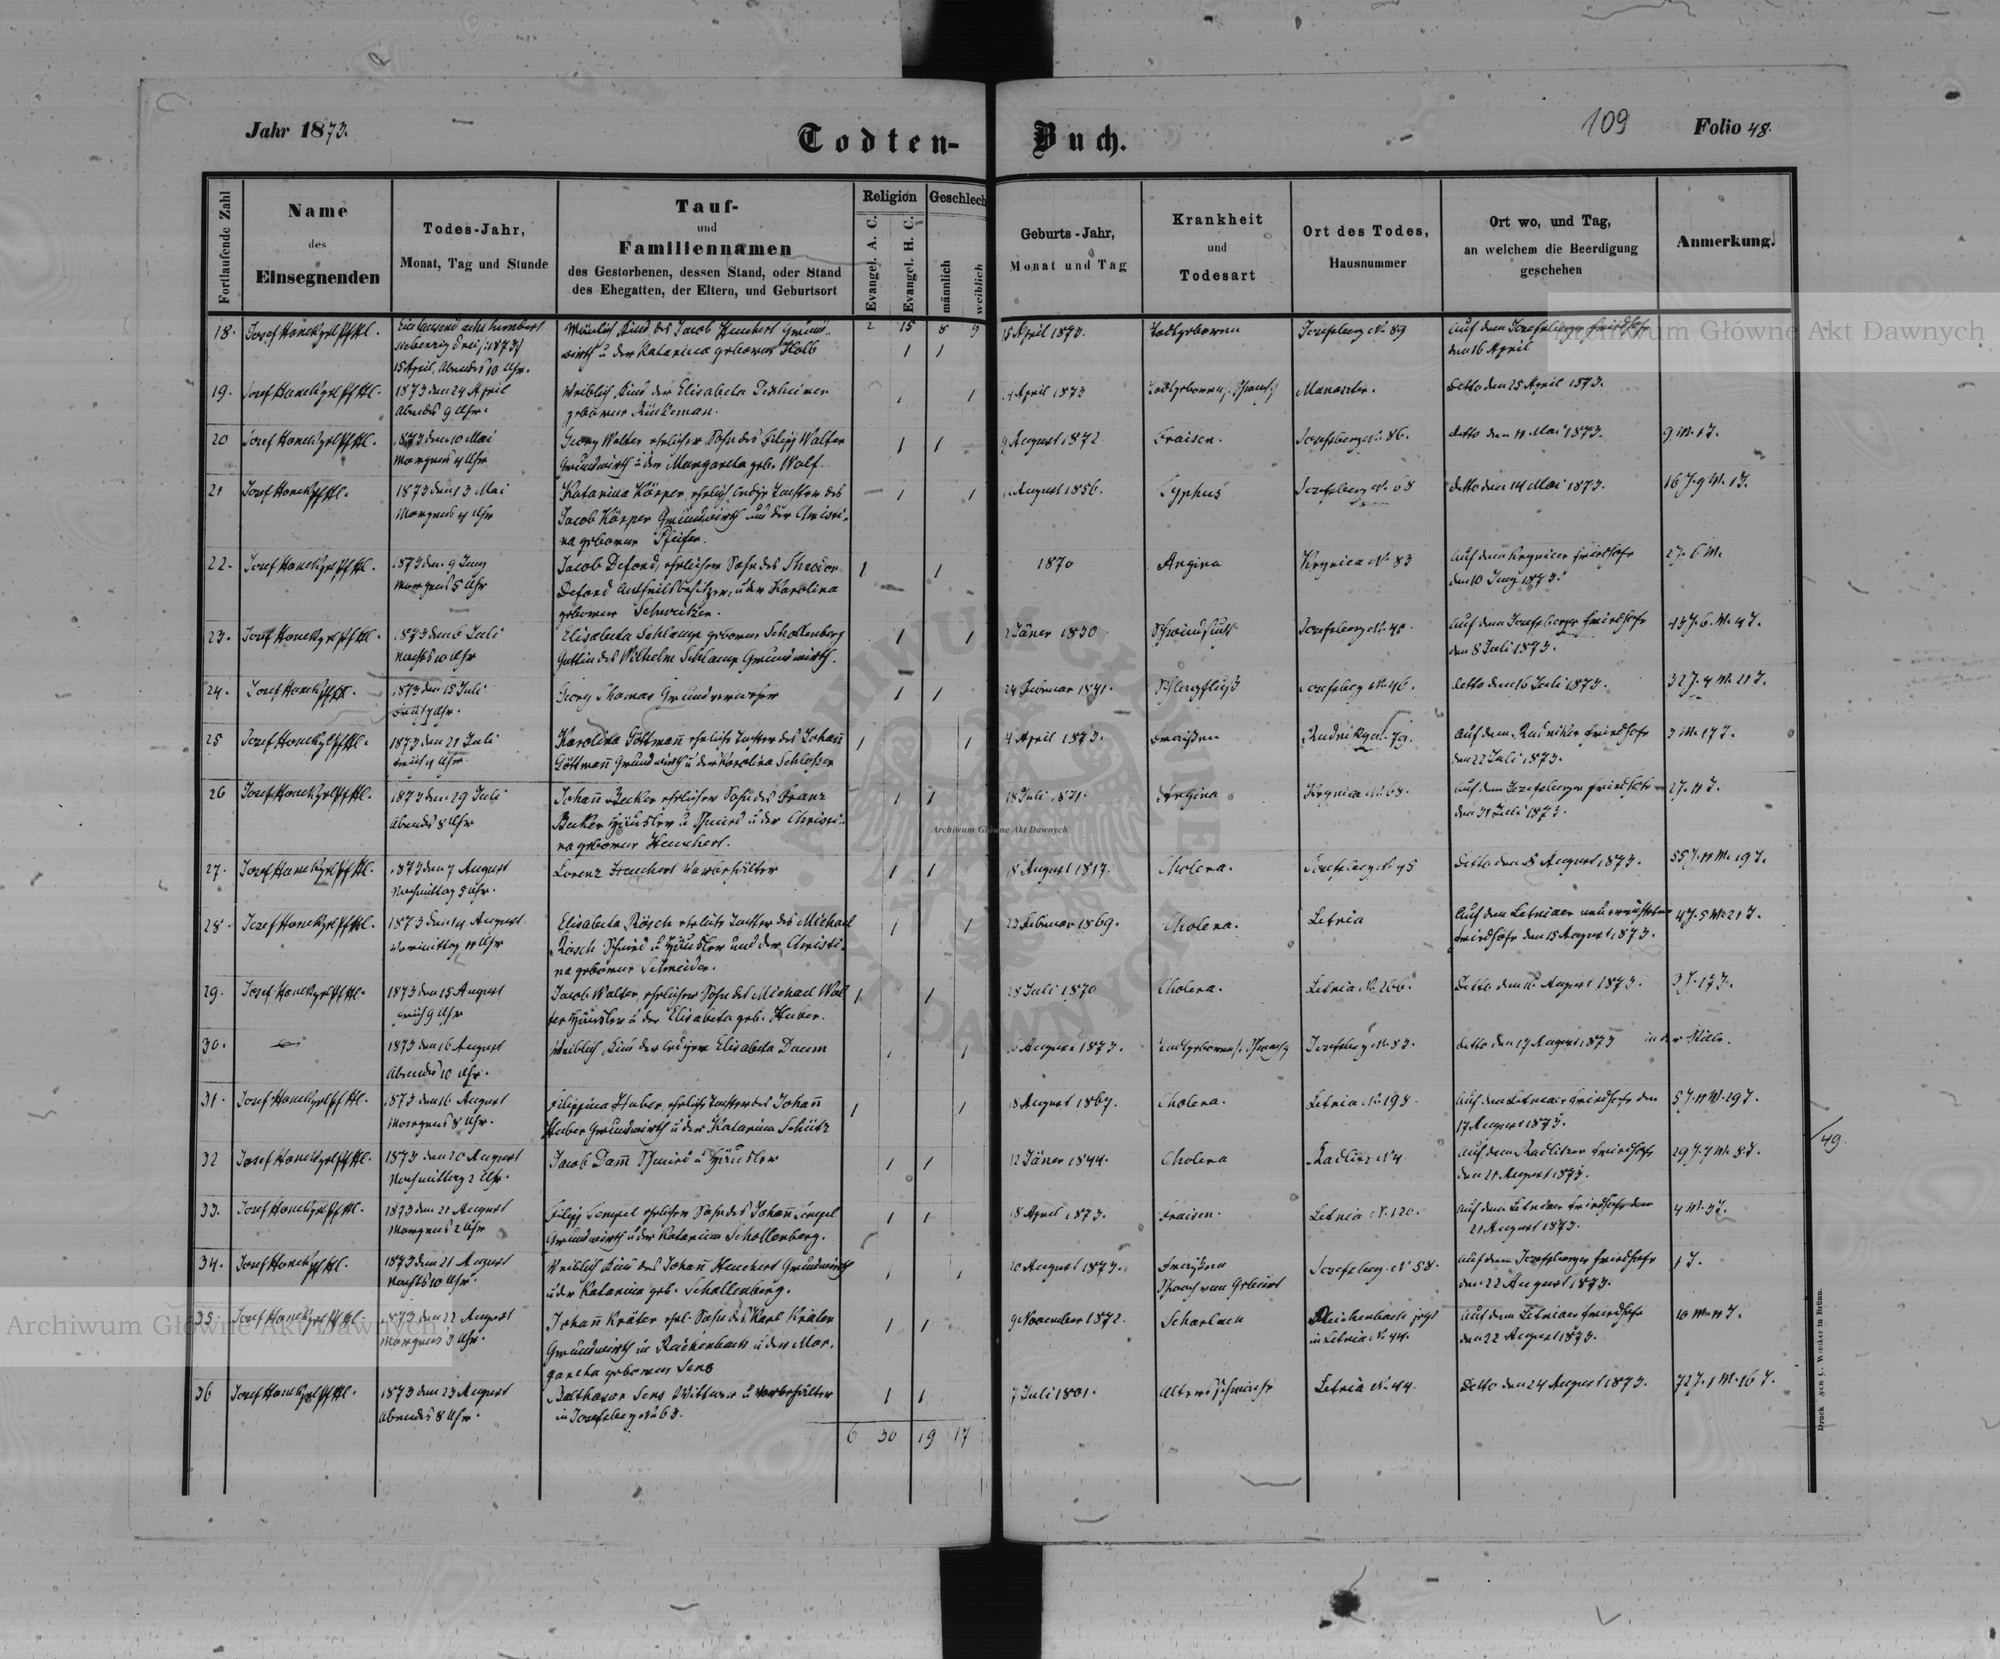 Jahr 1873.
Todten-Buch.
109
Folio 48.
Fortlaufende Zahl
Name
des
Einsegnenden
Todes-Jahr,
Monat, Tag und Stunde
Tauf-
und
Familiennamen
des Gestorbenen, dessen Stand, oder Stand
des Ehegatten, der Eltern, und Geburtsort
Religion
Evangel. A. C.
Evangel. H. C.
Geschlech
männlich
weiblich
Geburts-Jahr,
Monat und Tag
Krankheit
und
Todesart
Ort des Todes,
Hausnummer
Ort wo, und Tag,
an welchem die Beerdigung
geschehen
Anmerkung.
18. Josef Honek
Ein tausend acht hundert
siebenzig drei /:1873:/
15 April, Abends 10 Uhr.
Männlich Kind des Jacob Heuchert Grund-
wirth u der Katarina geborene Kolb
2 15 8 9
15 April 1873.
Todtgeboren
Josefsberg No 89
Auf dem Josefsberger Friedhofe
den 16 April
19. Josef Honek
1873 den 24 April
Abends 9 Uhr.
Weiblich Kind der Elisabeta
geborene
April 1873
Todtgeboren
Detto den 25 April 1873.
20 Josef Honek
1873 den 10 Mai
Morgens 4 Uhr
Georg Walter ehelicher Sohn des Filipp Walter
Grundwirth u der Margareta geb. Wolf.
9 August 1872
Fraisen.
Josefsberg No. 86.
detto den 11 Mai 1873.
9 M. 1 T.
21 Josef Honek
1873 den 13 Mai
Morgens 4 Uhr
Katarina Körper, ehelich ledige Tochter des
Jacob Körper Grundwirth und der Christi-
na geborene Pfeifer.
August 1856.
Typhus
Josefsberg No 68
detto den 14 Mai 1873.
16 J. 9 M. 1 T.
22. Josef Honek
1873 den 9 Juny
Morgens 5 Uhr
Jacob Deford, ehelicher Sohn des Theodor
Deford Antheilsbesitzer, u der Karolina
geborene Schweitzer.
1870
Angina
Krynica No 83
Auf dem Krynicer Friedhofe
den 10 Juny 1873.
2 J. 6 M.
23. Josef Honek
1873 den 6 Juli
Nachts 10 Uhr
Elisabeta Schlamp geborene Schollenberg
Gattin des Wilhelm Schlamp Grundwirth.
2 Jäner 1830
Schwindsucht
Josefsberg No. 40.
Auf dem Josefsberger Friedhofe
den 8 Juli 1873.
43 J. 6. M. 4 T.
24. Josef Honek
1873 den 15 Juli
Früh 7 Uhr.
Georg Thomas Grundverweser
24 Februar 1841.
Schlagfluß
Josefsberg No. 46.
detto den 16 Juli 1873.
32 J. 4 M. 21 T.
25 Josef Honek
1873 den 21 Juli
Früh 4 Uhr.
Karolina Göttmañ eheliche Tochter des Johañ
Göttmañ Grundwirth u der Karolina Schlosser
4 April 1873.
Fraißen
Auf dem Rudniker Friedhofe
den 22 Juli 1873.
3 M. 17 T.
26 Josef Honek
1873 den 29 Juli
Abends 8 Uhr
Johañ Becker ehelicher Sohn des Franz
Becker Häusler u Schmied u der Christi-
na geborene Heuchert.
18 Juli 1871.
Angina
Krynica No 68.
Auf dem Josefsberger Friedhofe
den 31 Juli 1873.
2 J. 11 T.
27. Josef Honek
1873 den 7 August
Nachmittag 5 Uhr.
Lorenz Heuchert Vorbehälter
18 August 1817.
Cholera.
Josefsberg No. 45
Detto den 8 August 1873.
55 J. 11 M. 19 T.
28. Josef Honek
1873 den 14 August
Vormittag 11 Uhr
Elisabeta Rösch eheliche Tochter des Michael
Rösch Schmied u Häusler und der Christi-
na geborene Schneider.
23 Februar 1869.
Cholera.
Letnia
Auf dem Letniaer neu errichteten
Friedhofe den 15 August 1873.
4 J. 5 M. 21 T.
29. Josef Honek
1873 den 15 August
früh 9 Uhr
Jacob Walter, ehelicher Sohn des Michael Wal-
ter Häusler u der Elisabeta geb. Huber.
28 Juli 1870
Cholera.
Letnia No 266.
Detto den 16. August 1873.
3 J. 17 T.
30.
1873 den 16 August
Abends 10 Uhr.
Weiblich Kind der ledigen Elisabeta Daum
16 August 1873.
Todtgeboren
Josefsberg No. 83.
detto den 17 August 1873 in der Stille.
31. Josef Honek
1873 den 16 August
Morgens 8 Uhr.
Filippina Huber, eheliche Tochter des Johañ
Huber Grundwirth u der Katarina Schütz
18 August 1867.
Cholera.
Letnia No. 193.
Auf dem Letniaer Friedhofe den
17 August 1873.
5 J. 11 M. 29 T.
32 Josef Honek
1873 den 20 August
Nachmittag 2 Uhr.
Jacob Dam̄ Schmied u Häusler
12 Jäner 1844.
Cholera
Radlitz No 4
Auf dem Radlitzer Friedhofe
den 21 August 1873.
29 J. 7 M. 8 T.
33. Josef Honek
1873 den 21 August
Morgens 2 Uhr
Filipp Sempel ehelicher Sohn des Johañ Sempel
Grundwirth u der Katarina Schollenberg.
18 April 1873.
Fraisen.
Letnia No. 120.
Auf dem Letniaer Friedhofe den
21 August 1873.
4 M. 3 T.
34. Josef Honek
1873 den 21 August
Nachts 10 Uhr.
Weiblich Kind des Johañ Heuchert Grundwirth
u der Katarina geb. Schollenberg.
20 August 1873.
Fraißen
Schwach von Geburt
Josefsberg No 58.
Auf dem Josefsberger Friedhofe
den 22 August 1873.
1 T.
35 Josef Honek
1873 den 22 August
Morgens 3 Uhr.
Johañ Kräter ehel. Sohn des Karl Kräter
Grundwirth in Reichenbach u der Mar-
gareta geborenen Sens
9 November 1872.
Scharlach
Reichenbach jetzt
in Letnia No. 44.
Auf dem Letniaer Friedhofe
den 22 August 1873.
10 M. 11 T.
36 Josef Honek
1873 den 23 August
Abends 8 Uhr.
Balthasar Sens Wittwer u Vorbehälter
in Josefsberg No 63.
7 Juli 1801.
Altersschwäche
Letnia No. 44.
Detto den 24 August 1873.
72 J. 1 M. 16 T.
6 30 19 17
49.
Archiwum Główne Akt Dawnych
Archiwum Główne Akt Dawnych
Archiwum Główne Akt Dawnych
ARCHIWUM GŁÓWNE AKT DAWNYCH